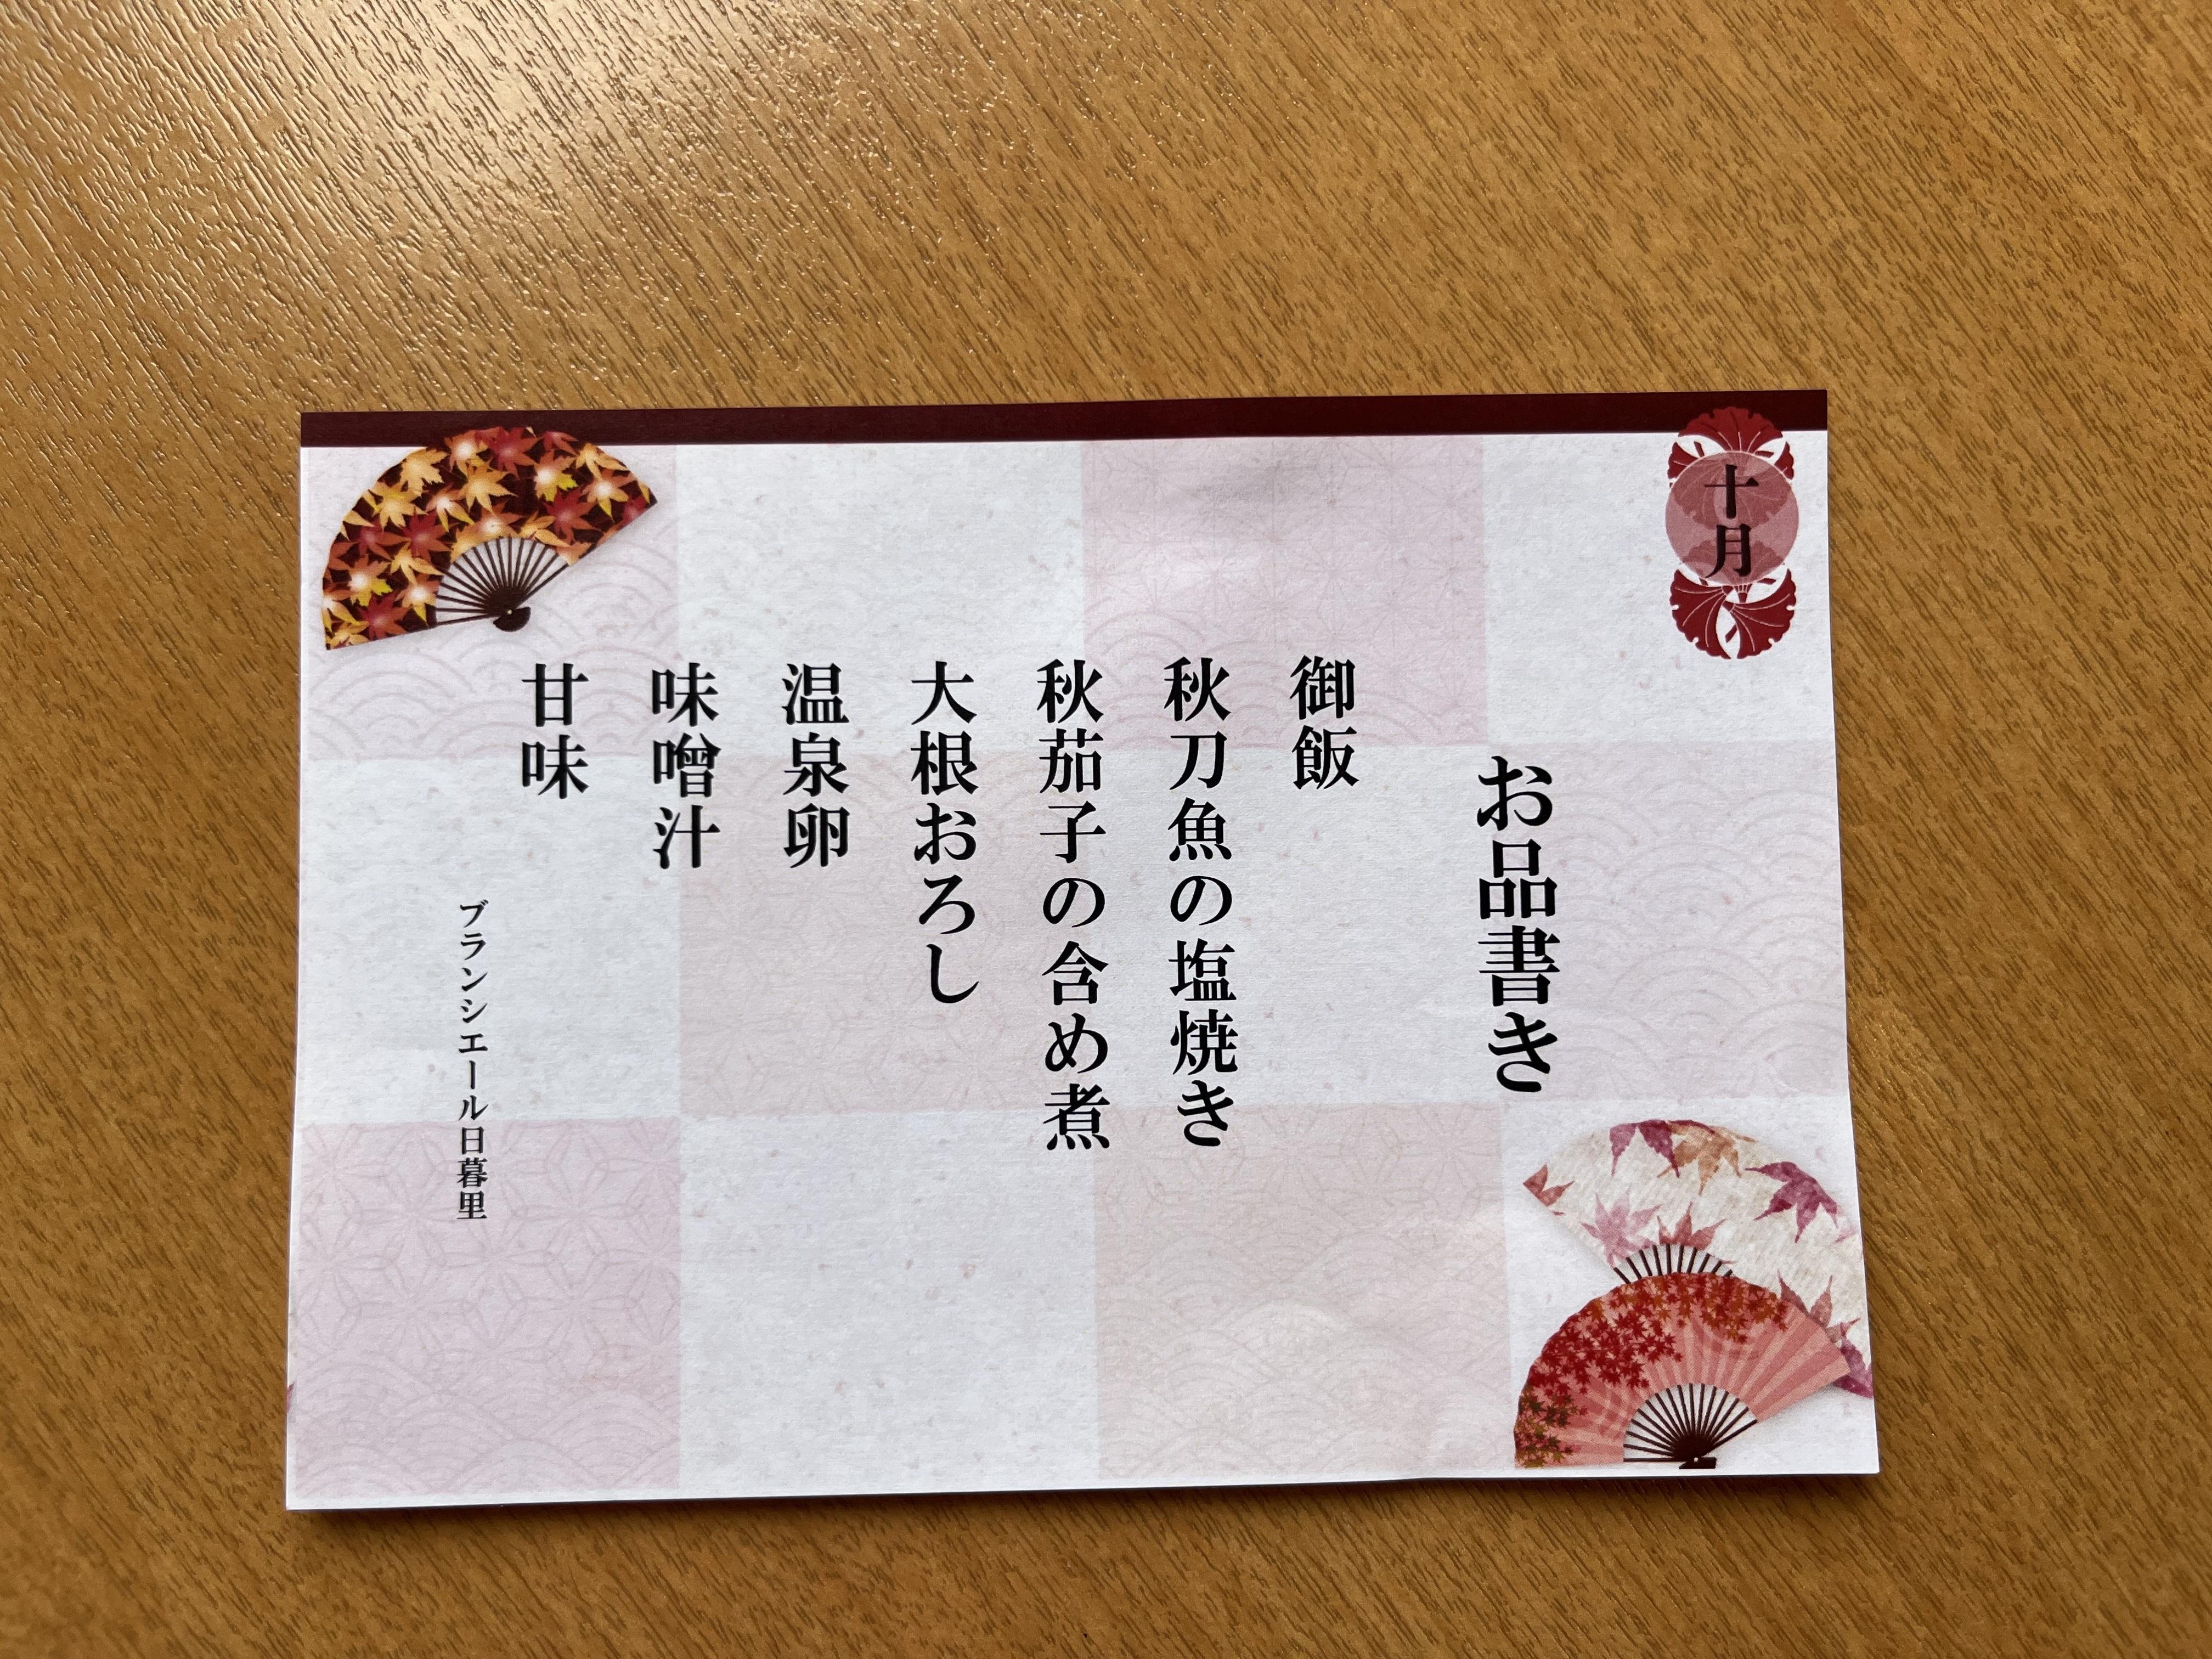 十月
お品書き
御飯
秋刀魚の塩焼き
秋茄子の含め煮
大根おろし
温泉卵
味噌汁
甘味
ブランシエール日暮里